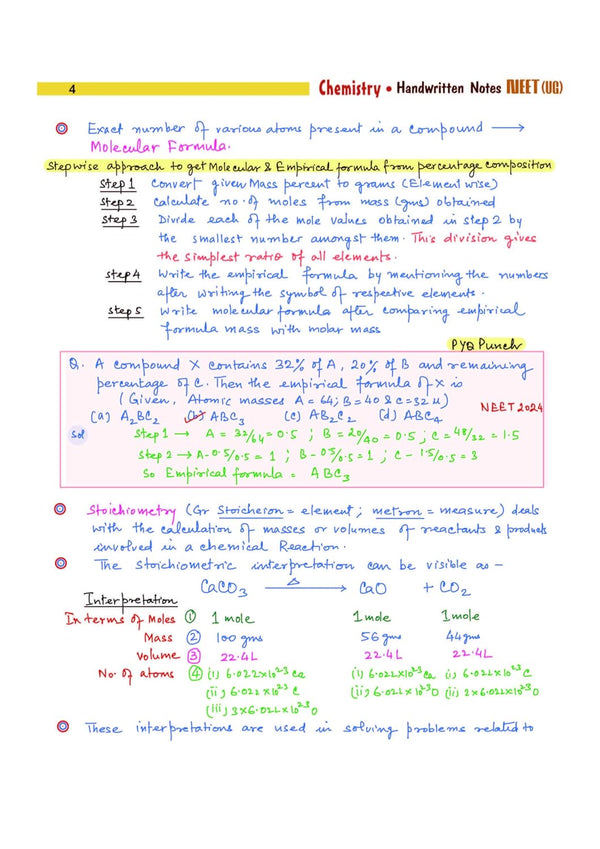 4
Chemistry • Handwritten Notes NEET (UG)
Exact number of various atoms present in a compound ⟶
Molecular Formula.
Stepwise approach to get Molecular & Empirical formula from percentage composition
Step 1 Convert given Mass percent to grams (Element wise)
Step 2 Calculate no. of moles from mass (gms) obtained
Step 3 Divide each of the mole values obtained in step 2 by
the smallest number amongst them. This division gives
the simplest ratio of all elements.
Step 4 Write the empirical formula by mentioning the numbers
after writing the symbol of respective elements.
Step 5 Write molecular formula after comparing empirical
formula mass with molar mass
PYQ Punch
Q. A compound X contains 32% of A, 20% of B and remaining
percentage of C. Then the empirical formula of X is
(Given, Atomic masses A = 64; B = 40 & C = 32 u)
NEET 2024
(a) A₂BC₂ (b) ABC₃ (c) AB₂C₂ (d) ABC₄
Sol Step 1 → A = 32/64 = 0.5 ; B = 20/40 = 0.5 ; C = 48/32 = 1.5
Step 2 → A - 0.5/0.5 = 1 ; B - 0.5/0.5 = 1 ; C - 1.5/0.5 = 3
So Empirical formula = ABC₃
Stoichiometry (Gr Stoicheron = element ; metron = measure) deals
with the calculation of masses or volumes of reactants & products
involved in a chemical Reaction.
The Stoichiometric interpretation can be visible as –
CaCO₃ —Δ→ CaO + CO₂
Interpretation
In terms of Moles ① 1 mole 1 mole 1 mole
Mass ② 100 gms 56 gms 44 gms
Volume ③ 22.4L 22.4L 22.4L
No. of atoms ④ (i) 6.022×10²³ Ca (i) 6.022×10²³ Ca (i) 6.022×10²³ C
(ii) 6.022×10²³ C (ii) 6.022×10²³ O (ii) 2×6.022×10²³ O
(iii) 3×6.022×10²³ O
These interpretations are used in solving problems related to